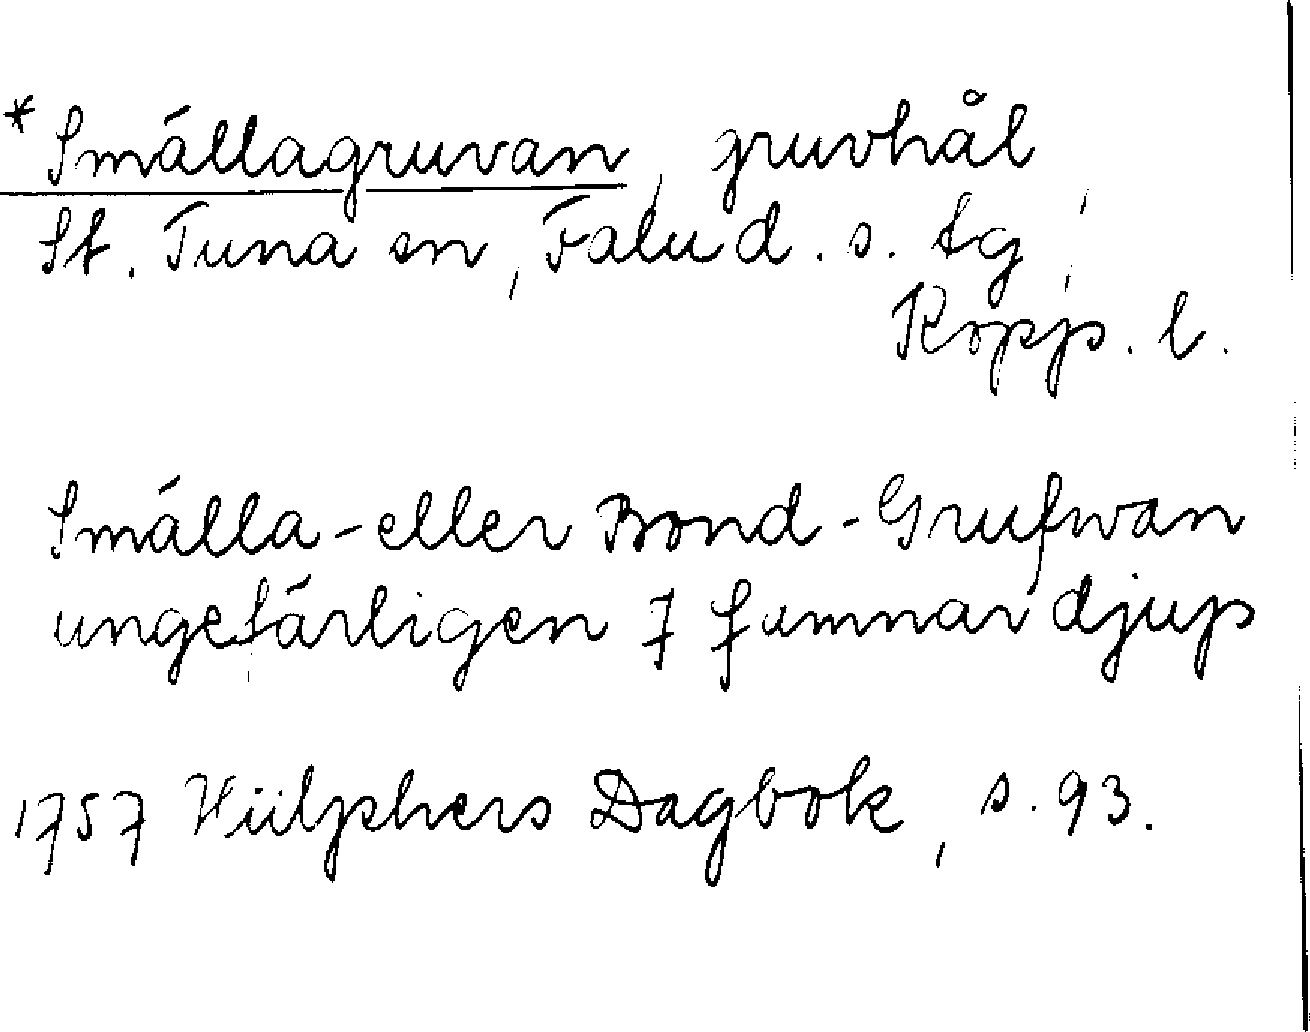 * Smällagruvan, gruvhål
St. Tuna sn, Falu d. s. tg,
Kopp. l.
Smälla-eller Bond-Grufwan
ungefärligen 7 famnar djup
1757 Hülphers Dagbok, s. 93.